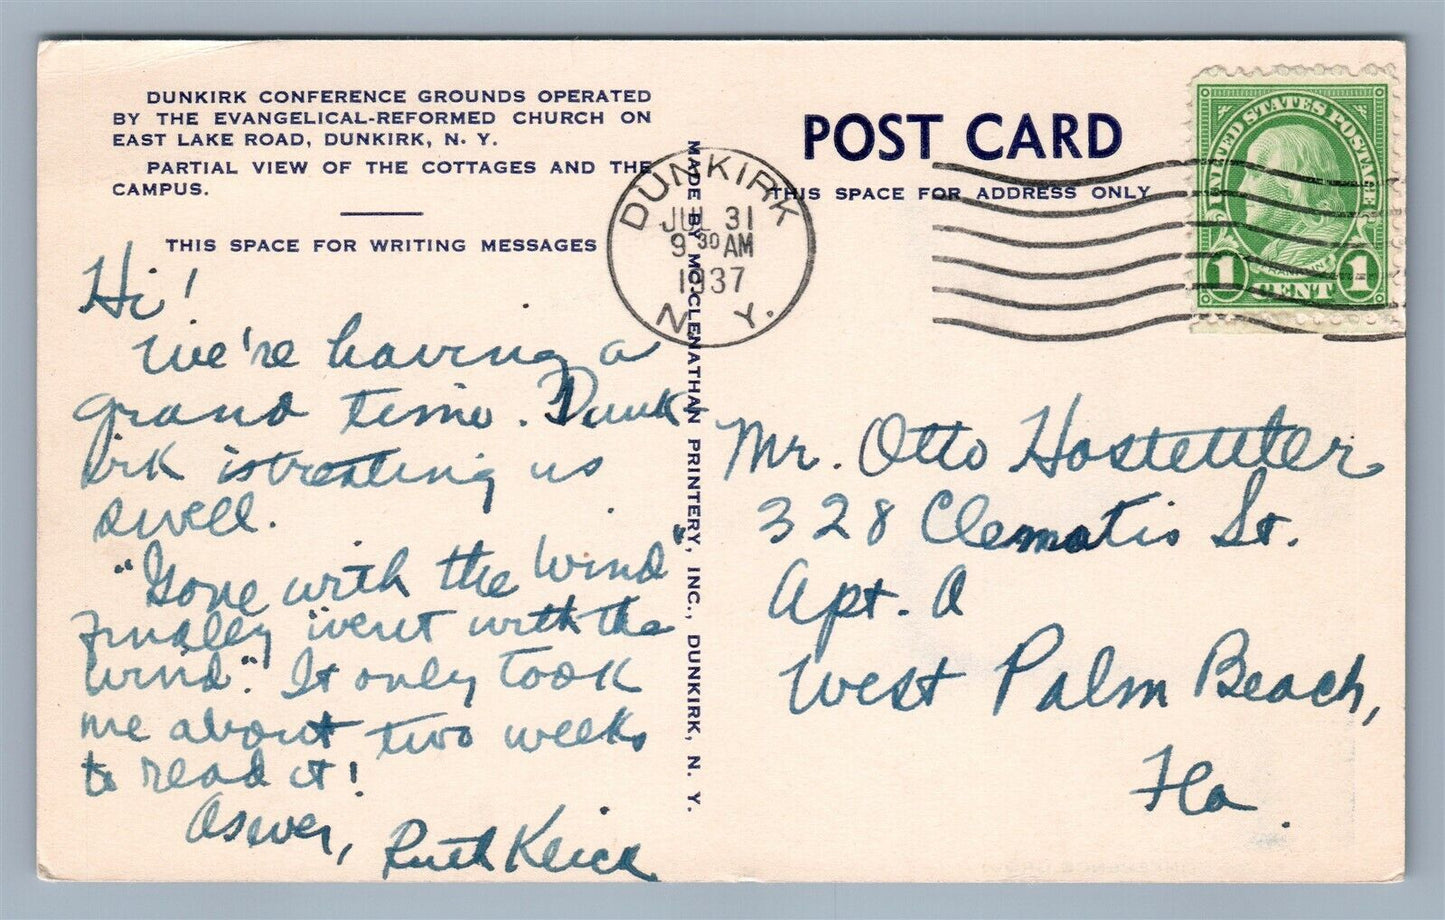 DUNKIRK CONFERENCE GROUNDS OPERATED
BY THE EVANGELICAL-REFORMED CHURCH ON
EAST LAKE ROAD, DUNKIRK, N. Y.
PARTIAL VIEW OF THE COTTAGES AND THE
CAMPUS.
THIS SPACE FOR WRITING MESSAGES
Hi!
We're having a
grand time. Dunk-
irk is treating us
swell.
"Gone with the Wind"
finally "went with the
wind". It only took
me about two weeks
to read it!
As ever,
Ruth
MADE BY MCCLENATHAN PRINTERY, INC., DUNKIRK, N. Y.
DUNKIRK
JUL 31
9 30 AM
1937
N. Y.
POST CARD
THIS SPACE FOR ADDRESS ONLY
UNITED STATES POSTAGE
FRANKLIN
1 CENT 1
Mr. Otto Hostettler
328 Clematis St.
Apt. A
West Palm Beach,
Fla.